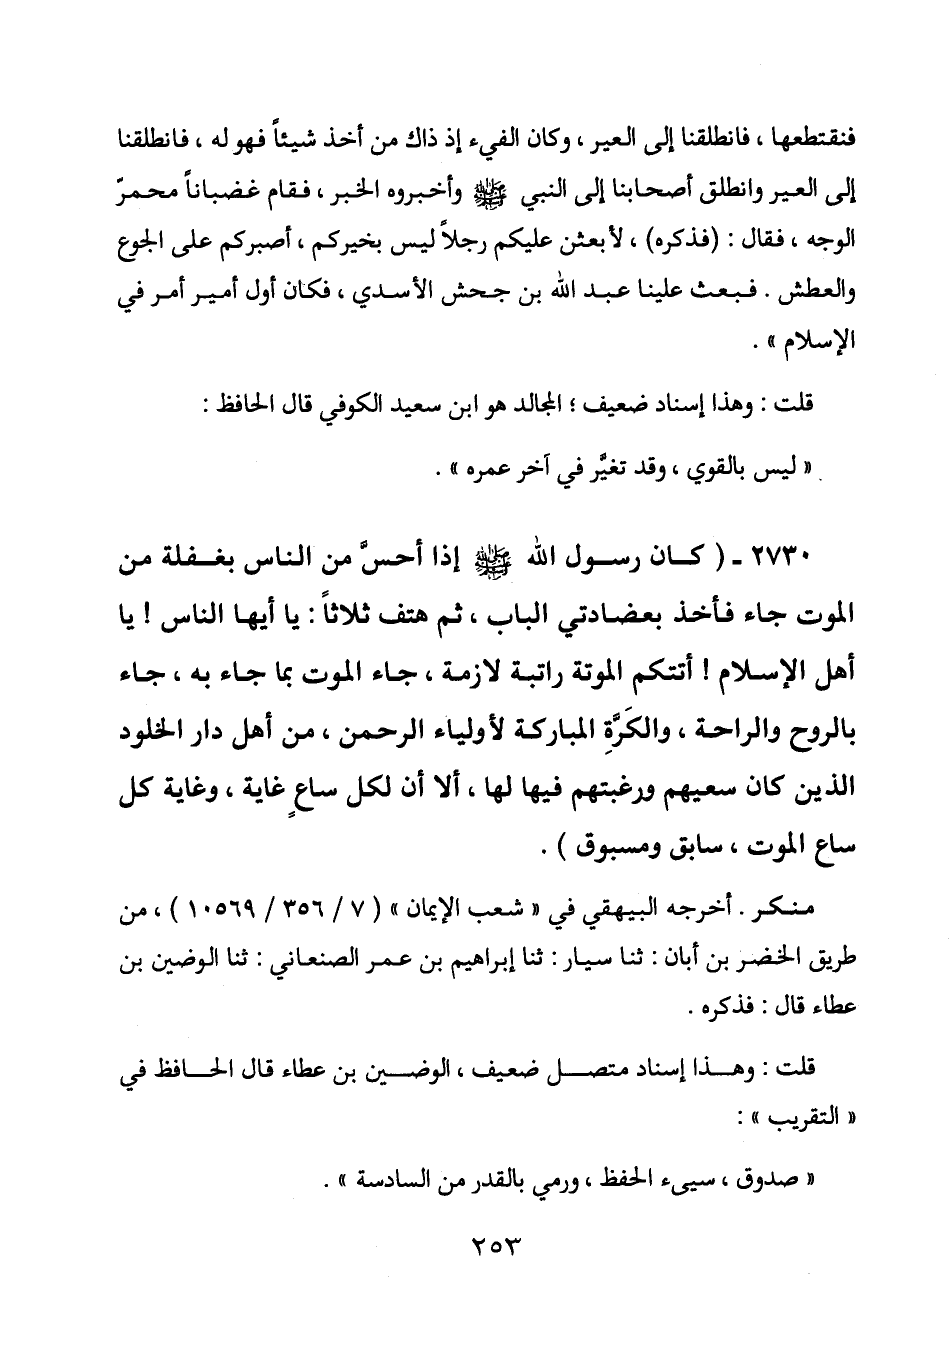 فنقتطعها ، فانطلقنا إلى العير ، وكان الفيء إذ ذاك من أخذ شيئاً فهو له ، فانطلقنا
إلى العير وانطلق أصحابنا إلى النبي ﷺ وأخبروه الخبر ، فقام غضباناً محمرّ
الوجه ، فقال : (فذكره) ، لأبعثن عليكم رجلاً ليس بخيركم ، أصبركم على الجوع
والعطش . فبعث علينا عبد الله بن جحش الأسدي ، فكان أول أمير أمر في
الإسلام » .
قلت : وهذا إسناد ضعيف ؛ المجالد هو ابن سعيد الكوفي قال الحافظ :
« ليس بالقوي ، وقد تغيَّر في آخر عمره » .
٢٧٣٠ ـ ( كان رسول الله ﷺ إذا أحسَّ من الناس بغفلة من
الموت جاء فأخذ بعضادتي الباب ، ثم هتف ثلاثاً : يا أيها الناس ! يا
أهل الإسلام ! أتتكم الموتة راتبة لازمة ، جاء الموت بما جاء به ، جاء
بالروح والراحة ، والكَرَّةِ المباركة لأولياء الرحمن ، من أهل دار الخلود
الذين كان سعيهم ورغبتهم فيها لها ، ألا أن لكل ساعٍ غاية ، وغاية كل
ساع الموت ، سابق ومسبوق ) .
منكر . أخرجه البيهقي في « شعب الإيمان » ( ٧ / ٣٥٦ / ١٠٥٦٩ ) ، من
طريق الخضر بن أبان : ثنا سيار : ثنا إبراهيم بن عمر الصنعاني : ثنا الوضين بن
عطاء قال : فذكره .
قلت : وهذا إسناد متصل ضعيف ، الوضين بن عطاء قال الحافظ في
« التقريب » :
« صدوق ، سيىء الحفظ ، ورمي بالقدر من السادسة » .
٢٥٣